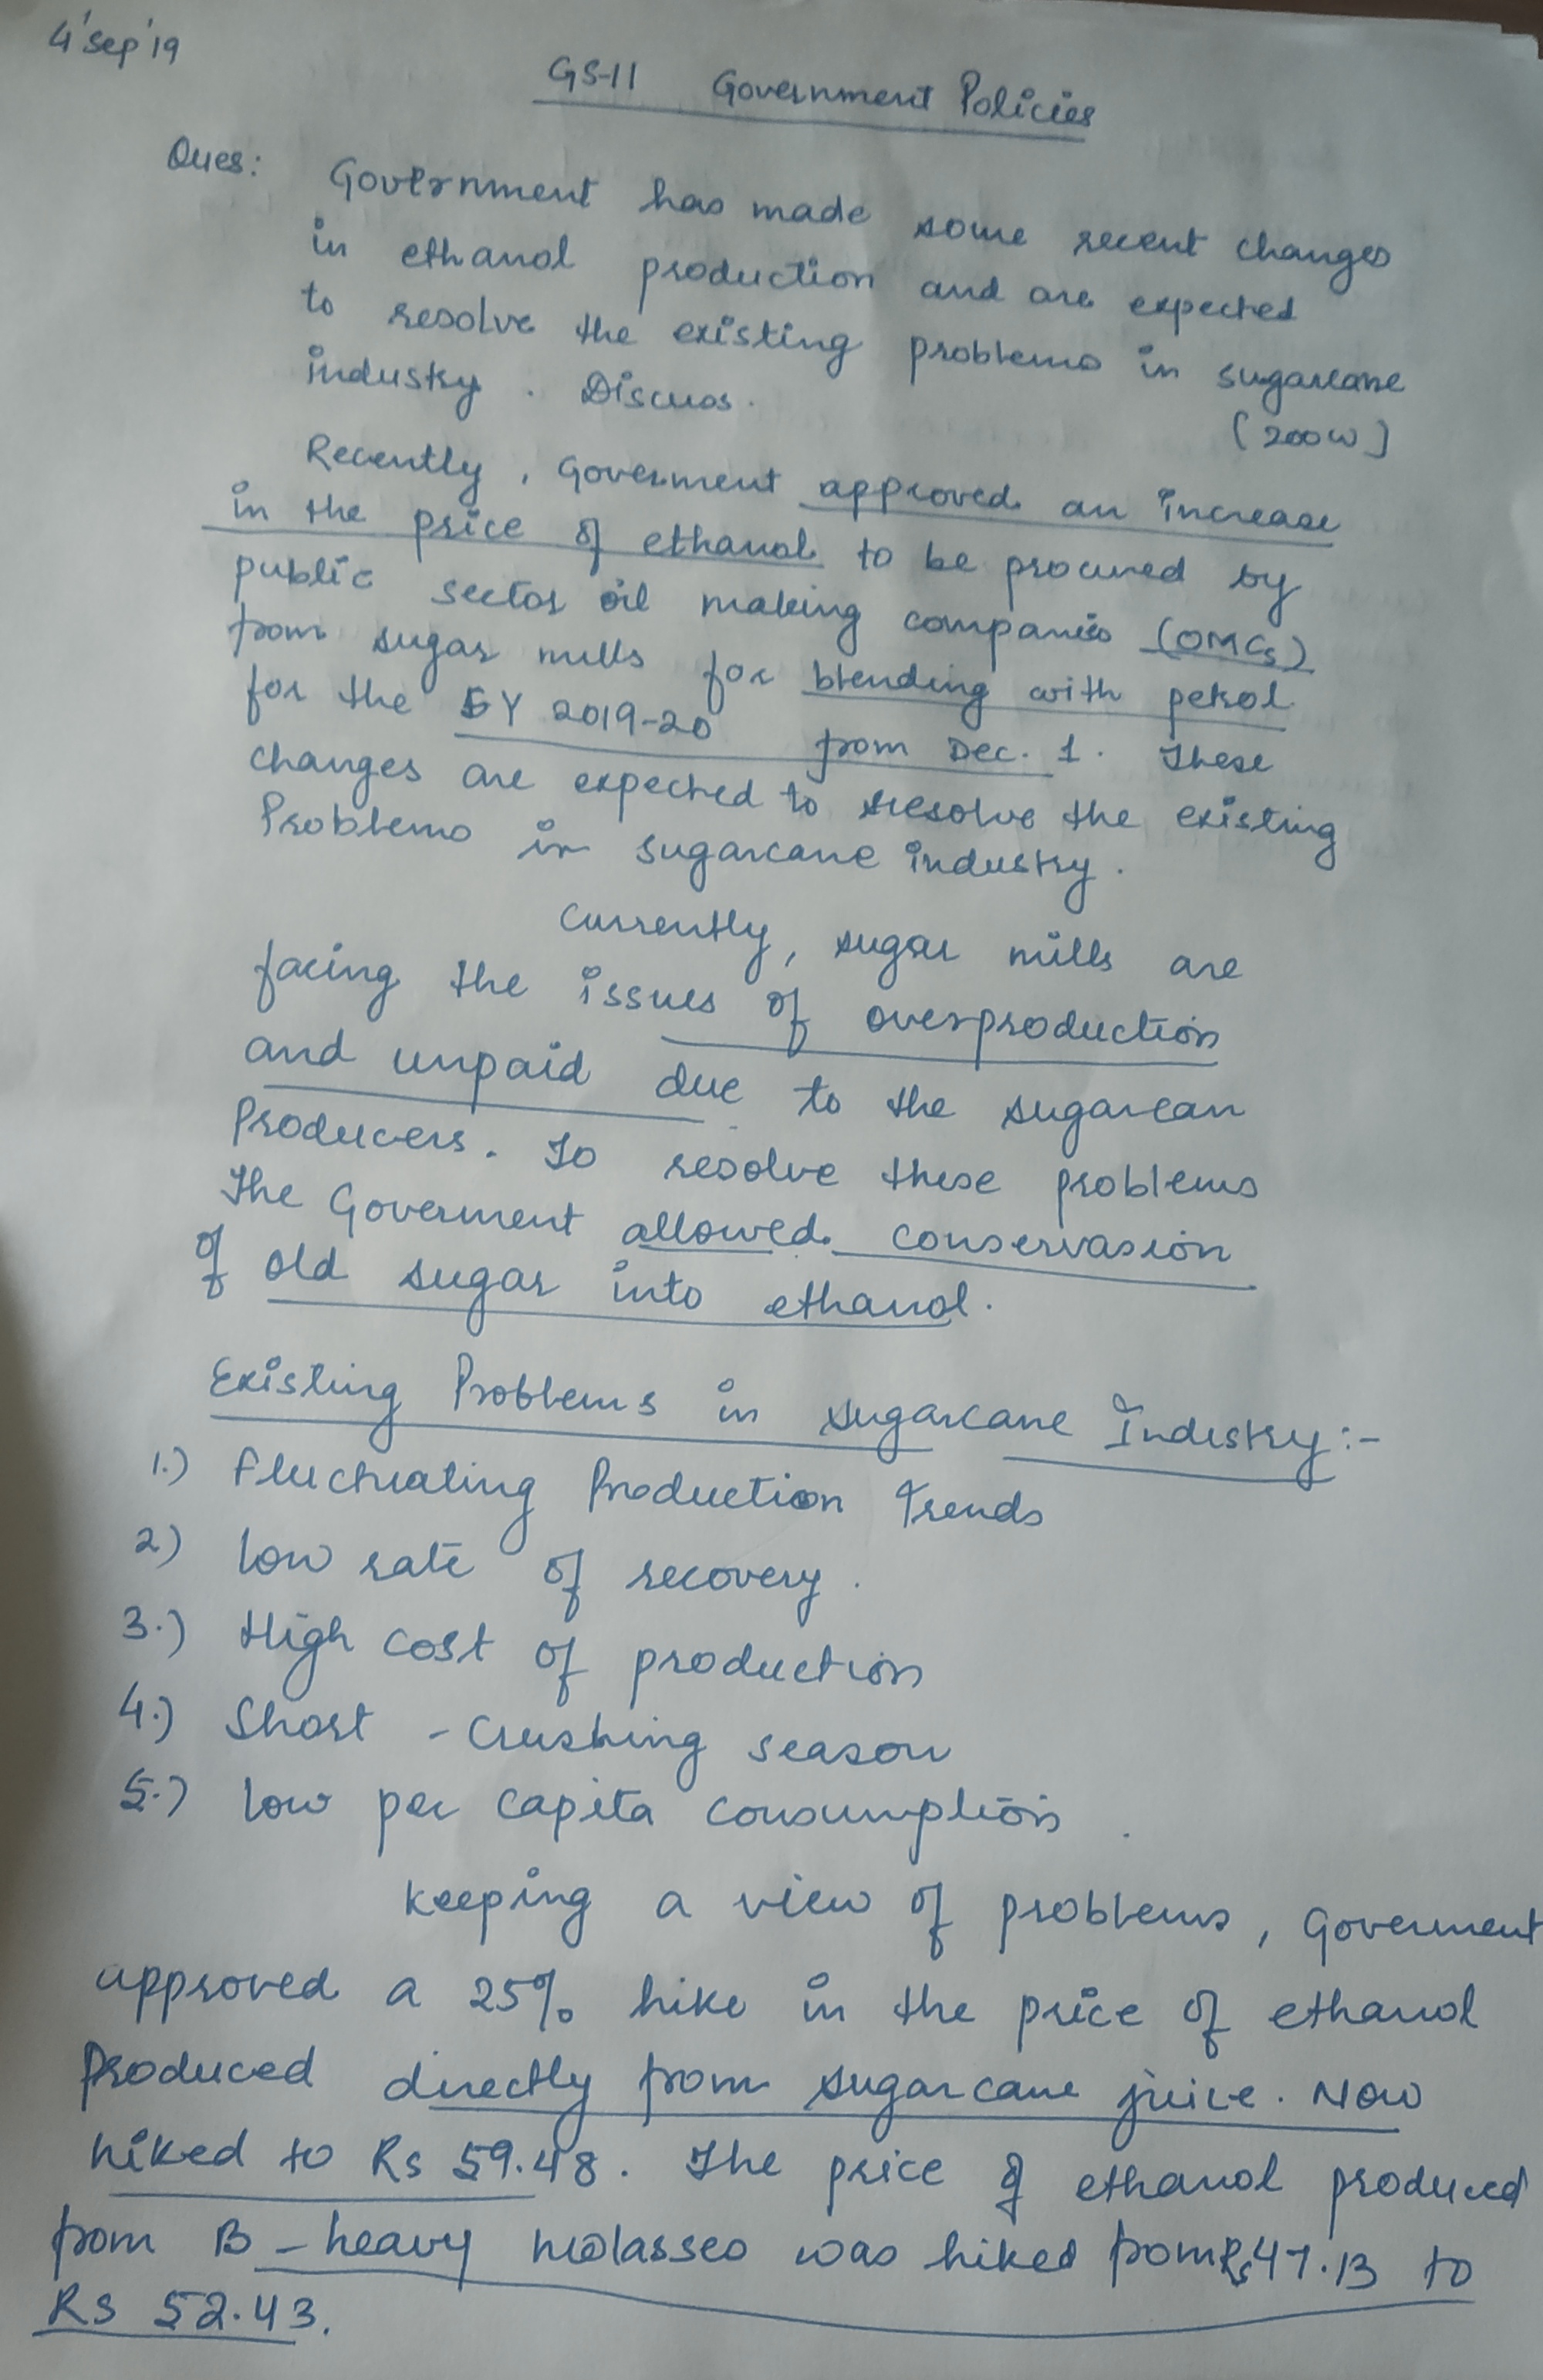 4'Sep'19
GS-11 Government Policies
Ques: Government has made some recent changes
in ethanol production and are expected
to resolve the existing problems in sugarcane
industry. Discuss.
(200W]
Recently, Goverment approved an increase
in the price of ethanol to be procured by
public sector oil making companies (OMCs)
from sugar mills for blending with petrol
for the SY 2019-20 from Dec. 1. These
changes are expected to resolve the existing
Problems in sugarcane industry.
Currently, sugar mills are
facing the issues of overproduction
and unpaid due to the sugarcan
Producers. To resolve these problems
The Goverment allowed conservasion
of old sugar into ethanol.
Existing Problems in sugarcane Industry:-
1.) Fluctuating Production Trends
2) Low rate of recovery.
3.) High cost of production
4.) Short - Crushing season
5.) Low per capita consumption.
Keeping a view of problems, Goverment
approved a 25% hike in the price of ethanol
Produced directly from sugarcane juice. Now
hiked to Rs 59.48. The price of ethanol produced
from B-heavy molasses was hiked from Rs 47.13 to
Rs 52.43.